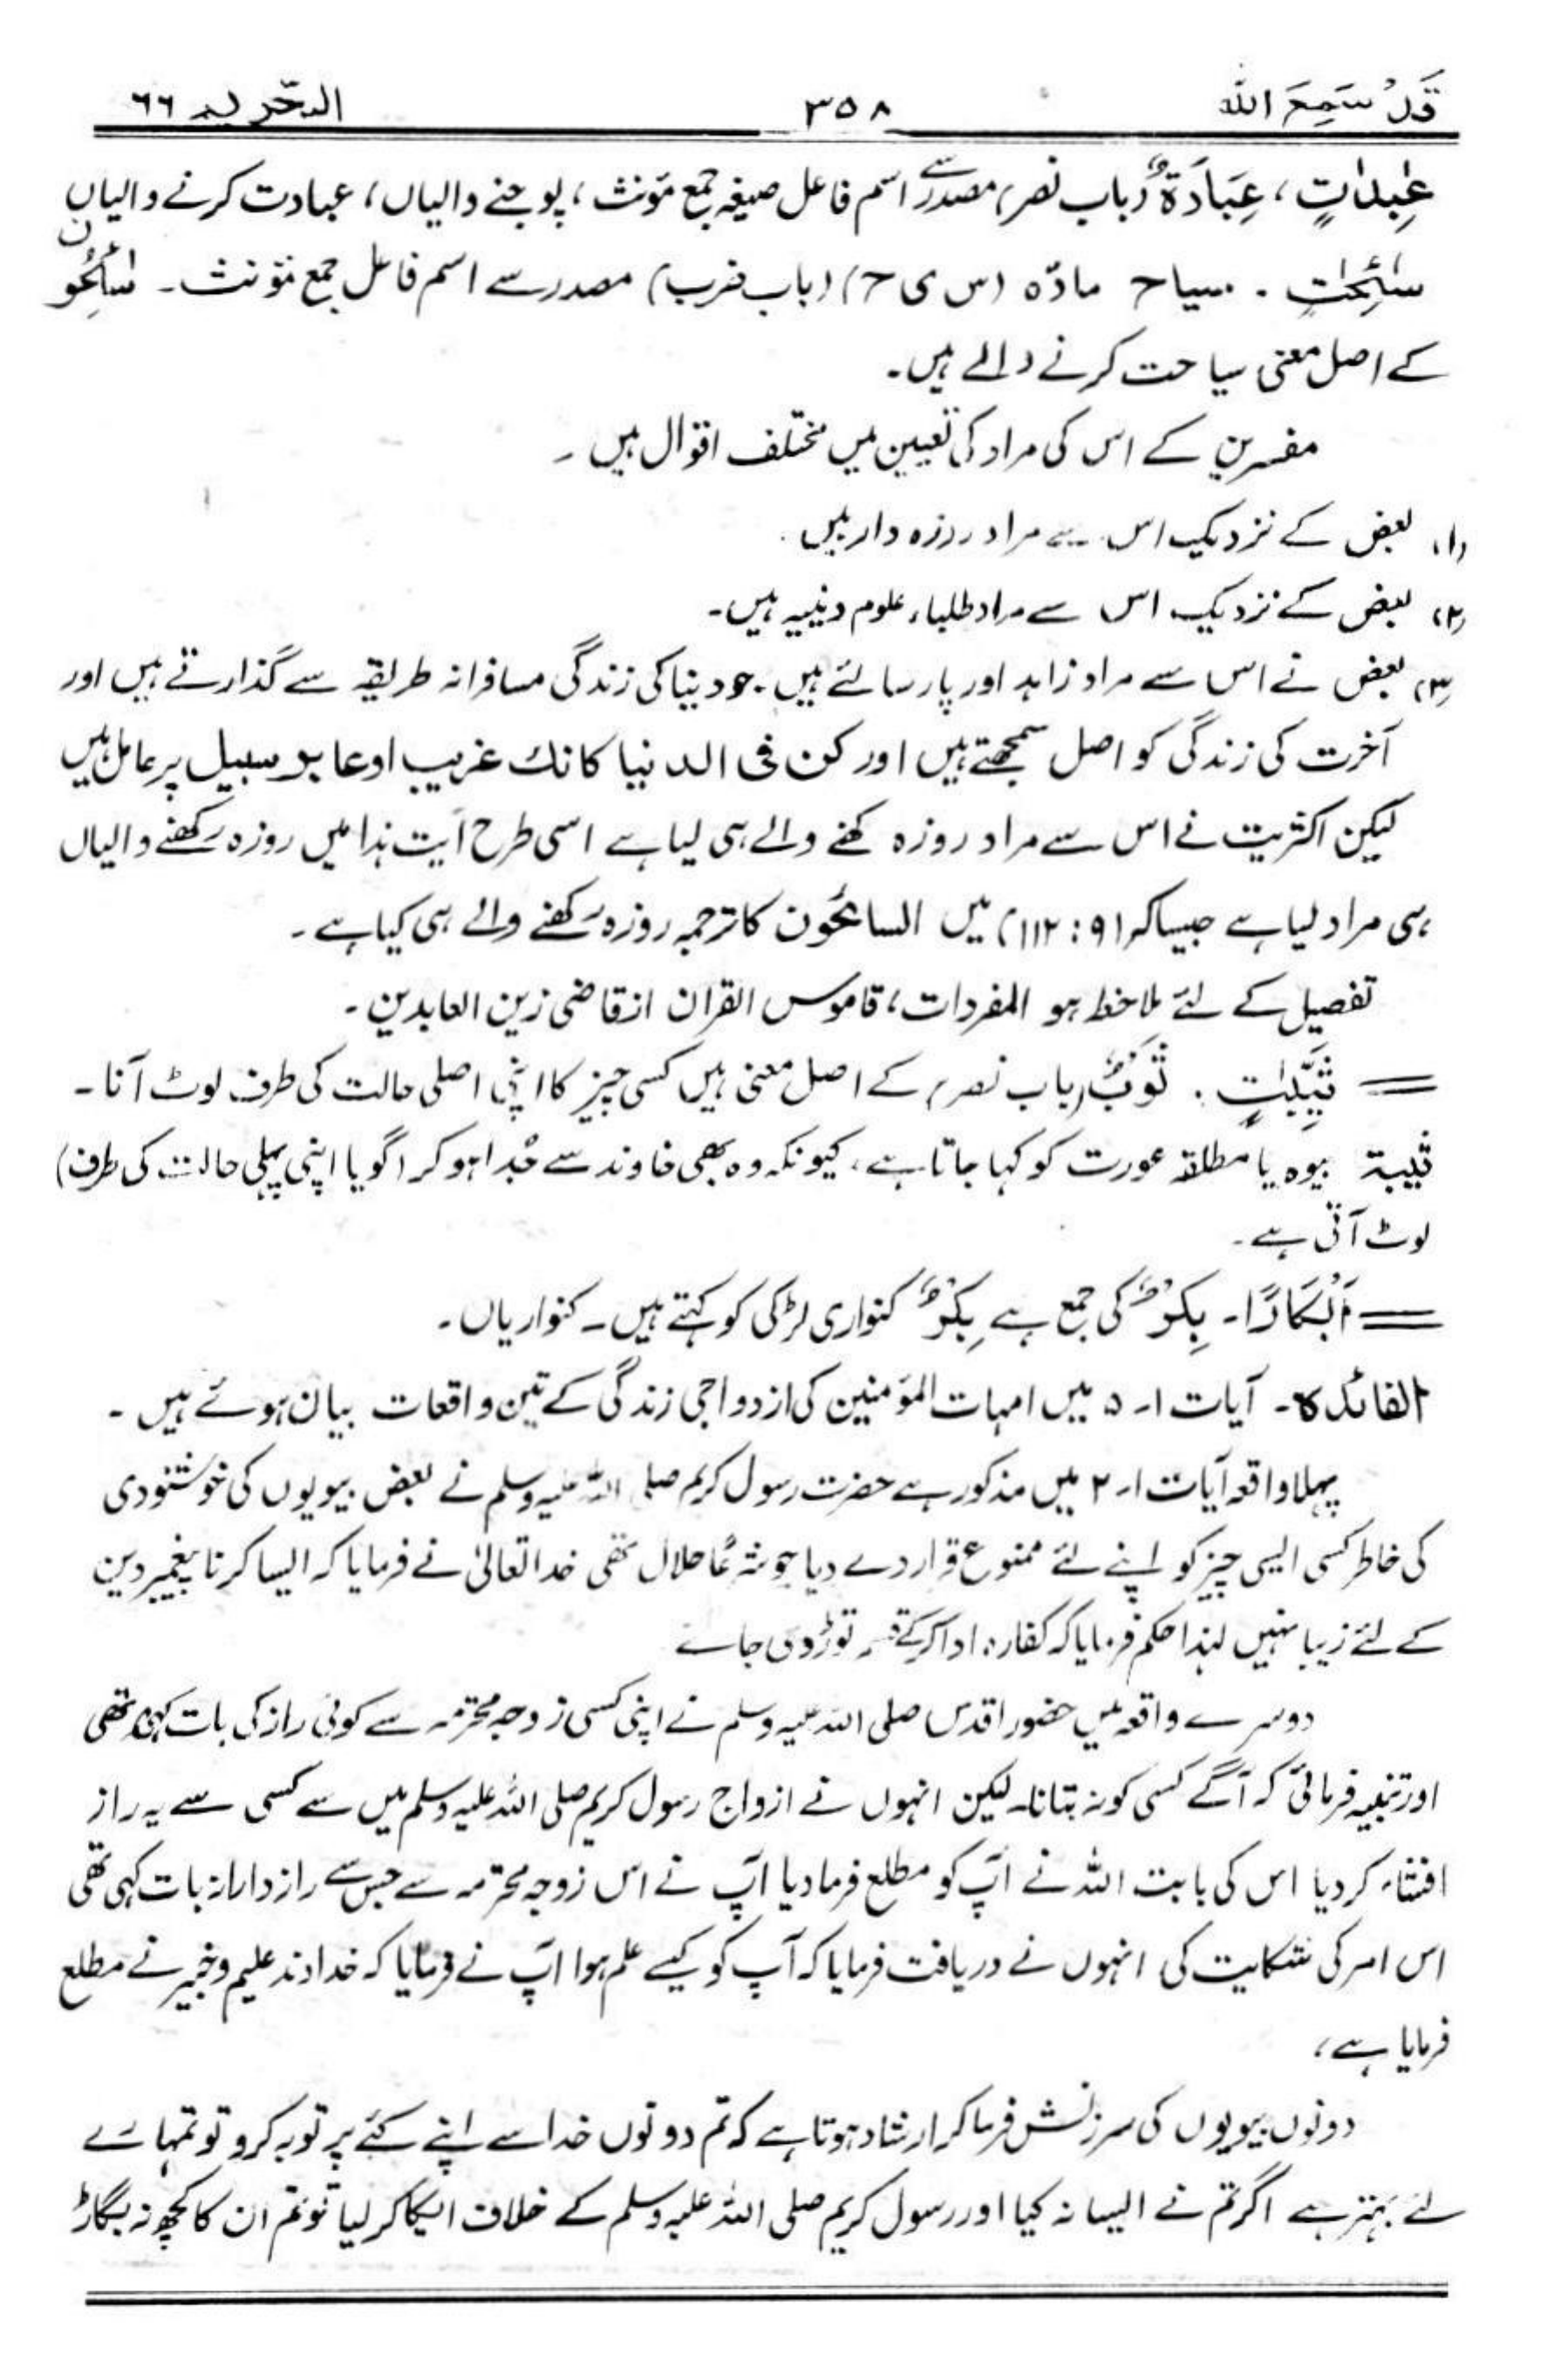 قَدْ سَمِعَ اللہ ۳۵۸ التحریم ۶۶
عٰبِدٰاتٍ، عِبَادَةٌ (باب نصر) مصدر سے اسم فاعل صیغہ جمع مؤنث، پوجنے والیاں، عبادت کرنے والیاں
سٰئِحٰتٍ ۔ سیاح مادّہ (س ی ح) (باب ضرب) مصدر سے اسم فاعل جمع مؤنث ۔ سٰئِحُوْن
کے اصل معنی سیاحت کرنے والے ہیں۔
مفسرین کے اس کی مراد کی تعیین میں مختلف اقوال ہیں ۔
(۱) بعض کے نزدیک اس سے مراد روزہ دار ہیں۔
(۲) بعض کے نزدیک اس سے مراد طلباء علوم دینیہ ہیں۔
(۳) بعض نے اس سے مراد زاہد اور پارسا لئے ہیں۔ جو دنیا کی زندگی مسافرانہ طریقہ سے گذارتے ہیں اور
آخرت کی زندگی کو اصل سمجھتے ہیں اور کن فی الدنیا کانك غریب او عابر سبیل پر عامل ہیں
لیکن اکثریت نے اس سے مراد روزہ کھنے والے ہی لیا ہے اسی طرح آیت ہذا میں روزہ رکھنے والیاں
ہی مراد لیا ہے جیسا کہ (۹ : ۱۱۲) میں السائحون کا ترجمہ روزہ رکھنے والے ہی کیا ہے ۔
تفصیل کے لئے ملاحظہ ہو المفردات، قاموس القرآن از قاضی زین العابدین ۔
= ثَیِّبٰتٍ ۔ ثَوْبٌ (باب نصر) کے اصل معنی ہیں کسی چیز کا اپنی اصلی حالت کی طرف لوٹ آنا ۔
ثیبۃ بیوہ یا مطلقہ عورت کو کہا جاتا ہے، کیونکہ وہ بھی خاوند سے جُدا ہو کر (گویا اپنی پہلی حالت کی طرف)
لوٹ آتی ہے۔
= اَبْکَارًا ۔ بِکْرٌ کی جمع ہے بِکْرٌ کنواری لڑکی کو کہتے ہیں ۔ کنواریاں ۔
الفائدہ ۔ آیات ۱ ۔ ۵ میں امہات المؤمنین کی ازدواجی زندگی کے تین واقعات بیان ہوئے ہیں ۔
پہلا واقعہ آیات ۱ ۔ ۲ میں مذکور ہے حضرت رسول کریم صلی اللہ علیہ وسلم نے بعض بیویوں کی خوشنودی
کی خاطر کسی ایسی چیز کو اپنے لئے ممنوع قرار دے دیا جو شرعًا حلال تھی خدا تعالیٰ نے فرمایا کہ ایسا کرنا پیغمبر دین
کے لئے زیبا نہیں لہٰذا حکم فرمایا کہ کفارہ ادا کرکے قسم توڑ دی جاے
دوسرے واقعہ میں حضور اقدس صلی اللہ علیہ وسلم نے اپنی کسی زوجہ محترمہ سے کوئی راز کی بات کہی تھی
اور تنبیہ فرمائی کہ آگے کسی کو نہ بتانا۔ لیکن انہوں نے ازواج رسول کریم صلی اللہ علیہ وسلم میں سے کسی سے یہ راز
افشاء کر دیا اس کی بابت اللہ نے آپ کو مطلع فرما دیا آپ نے اس زوجہ محترمہ سے جس سے رازدارانہ بات کہی تھی
اس امر کی شکایت کی انہوں نے دریافت فرمایا کہ آپ کو کیسے علم ہوا آپ نے فرمایا کہ خداوند علیم و خبیر نے مطلع
فرمایا ہے،
دونوں بیویوں کی سرزنش فرما کر ارشاد ہوتا ہے کہ تم دونوں خدا سے اپنے کئے پر توبہ کرو تو تمہارے
لئے بہتر ہے اگر تم نے ایسا نہ کیا اور رسول کریم صلی اللہ علیہ وسلم کے خلاف ایکا کر لیا تو تم ان کا کچھ نہ بگاڑ